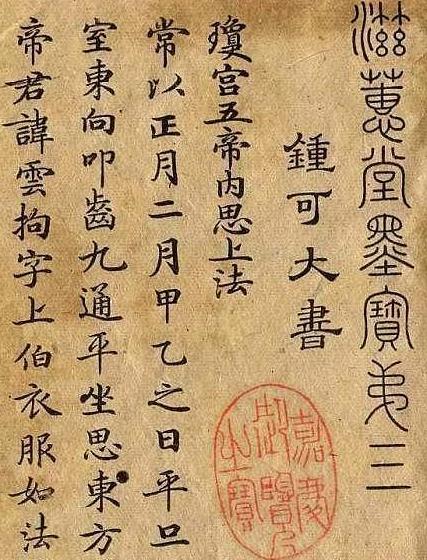 滋蕙堂墨寶弟三
鍾可大書
瓊宮五帝內思上法
常以正月二月甲乙之日平旦
室東向叩齒九通平坐思東方
帝君諱雲拘字上伯衣服如法
嘉慶御覽之寶